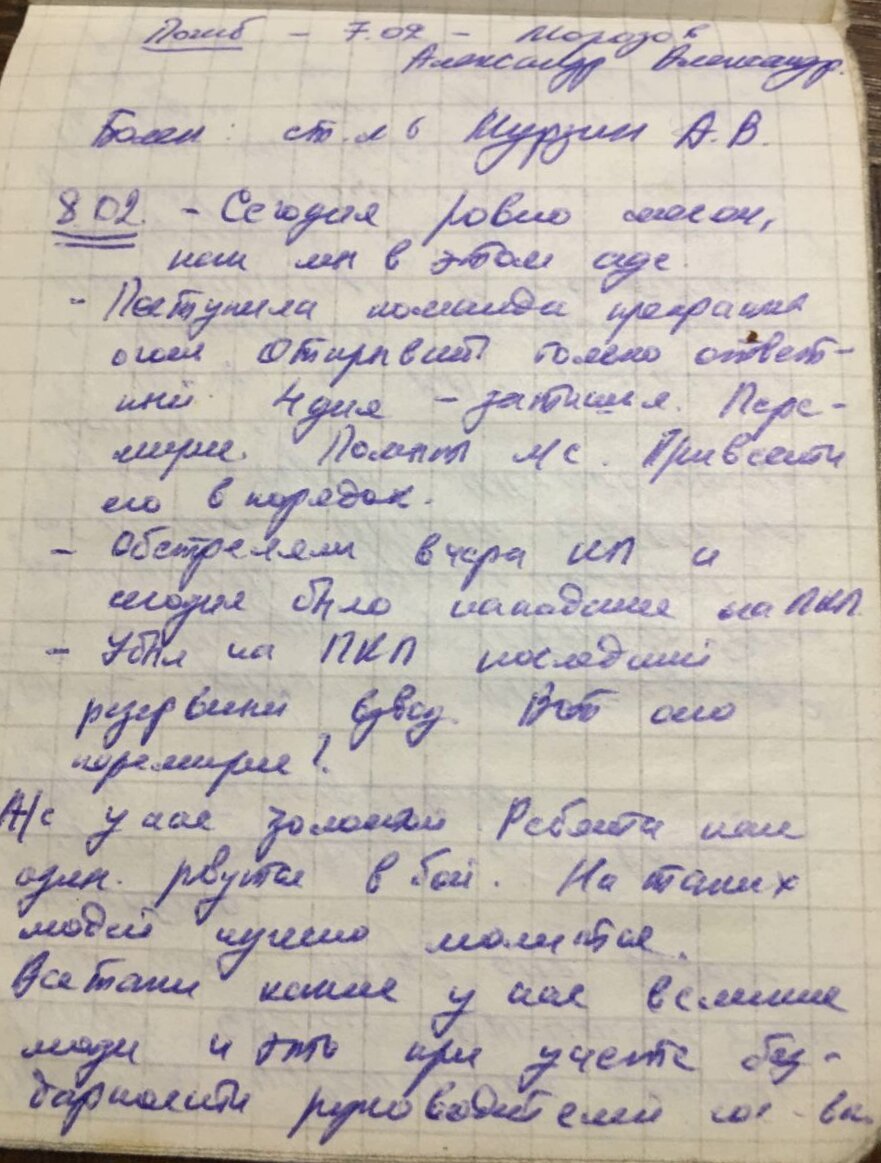 Погиб – 7.02 – Морозов
Александр Александр.
Болен: ст. л-т Мурзин А.В.
8.02. – Сегодня ровно месяц,
как мы в этом аде.
– Поступила команда прекратить
огонь Открывать только ответ-
ный 4 дня – затишья. Пере-
мирие. Помыть л/с. Привести
его в порядок.
– Обстреляли вчера КП и
сегодня было нападение на ПКП.
– Убыл на ПКП последний
резервный взвод. Вот оно
перемирие!
Л/с у нас золотой Ребята как
один. рвутся в бой. На таких
людей нужно молиться.
Все таки какие у нас великие
люди и это при учете без-
дарности руководителей гос-ва.